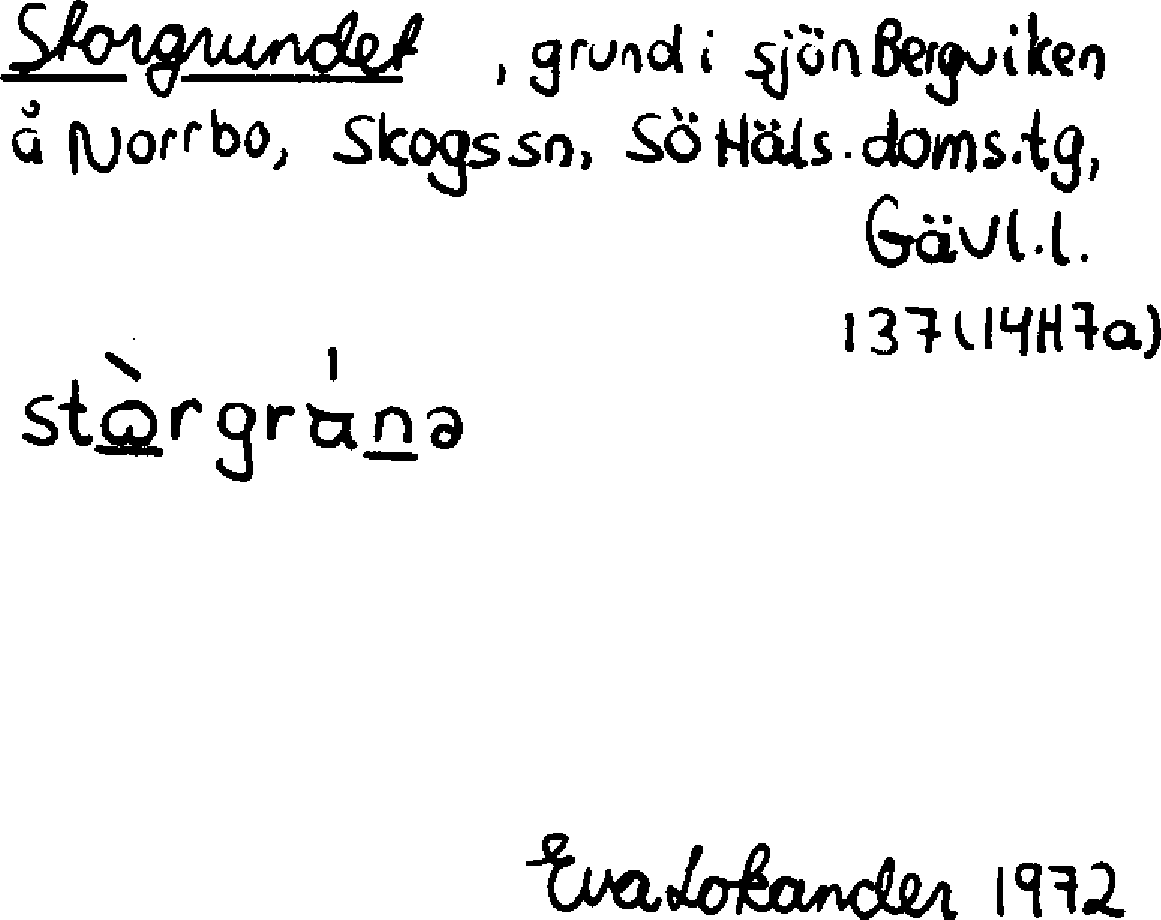 Storgrundet, grund i sjön Bergviken
å Norrbo, Skogs sn, SöHäls. doms.tg,
Gävl.l.
137(14H7a)
stὼ̲rgrá̵n̲ə
Eva Lokander 1972